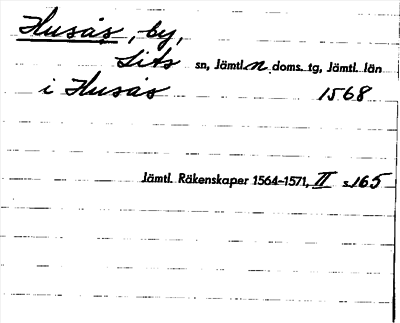 Husås, by,
Lits sn, Jämtl. n. doms. tg, Jämtl. län
i Husås 1568
Jämtl. Räkenskaper 1564-1571, II s. 165